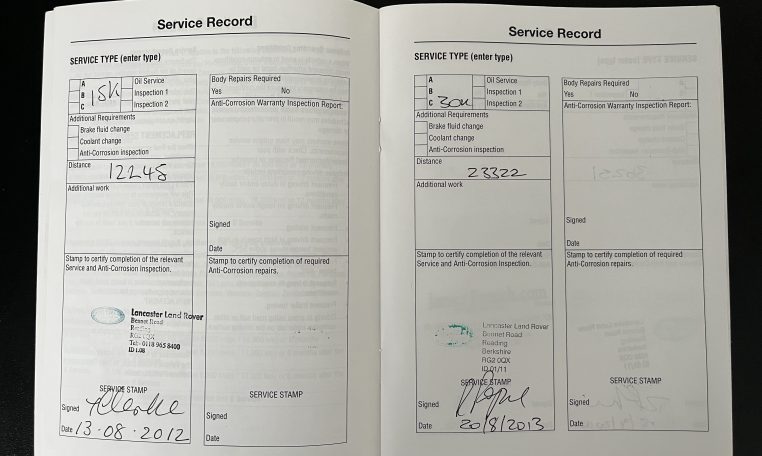 Service Record
SERVICE TYPE (enter type)
A
B
C
15K
Oil Service
Inspection 1
Inspection 2
Additional Requirements
Brake fluid change
Coolant change
Anti-Corrosion inspection
Distance
12245
Additional work
Stamp to certify completion of the relevant
Service and Anti-Corrosion Inspection.
Lancaster Land Rover
Bennet Road
Tel: 0118 965 8400
ID 1.08
SERVICE STAMP
Signed
Date 13·08·2012
Body Repairs Required
Yes No
Anti-Corrosion Warranty Inspection Report:
Signed
Date
Stamp to certify completion of required
Anti-Corrosion repairs.
SERVICE STAMP
Signed
Date
Service Record
SERVICE TYPE (enter type)
A
B
C
30K
Oil Service
Inspection 1
Inspection 2
Additional Requirements
Brake fluid change
Coolant change
Anti-Corrosion inspection
Distance
23322
Additional work
Stamp to certify completion of the relevant
Service and Anti-Corrosion Inspection.
Lancaster Land Rover
Bennet Road
Reading
Berkshire
RG2 0QX
ID 01/11
SERVICE STAMP
Signed
Date 20/8/2013
Body Repairs Required
Yes No
Anti-Corrosion Warranty Inspection Report:
Signed
Date
Stamp to certify completion of required
Anti-Corrosion repairs.
SERVICE STAMP
Signed
Date